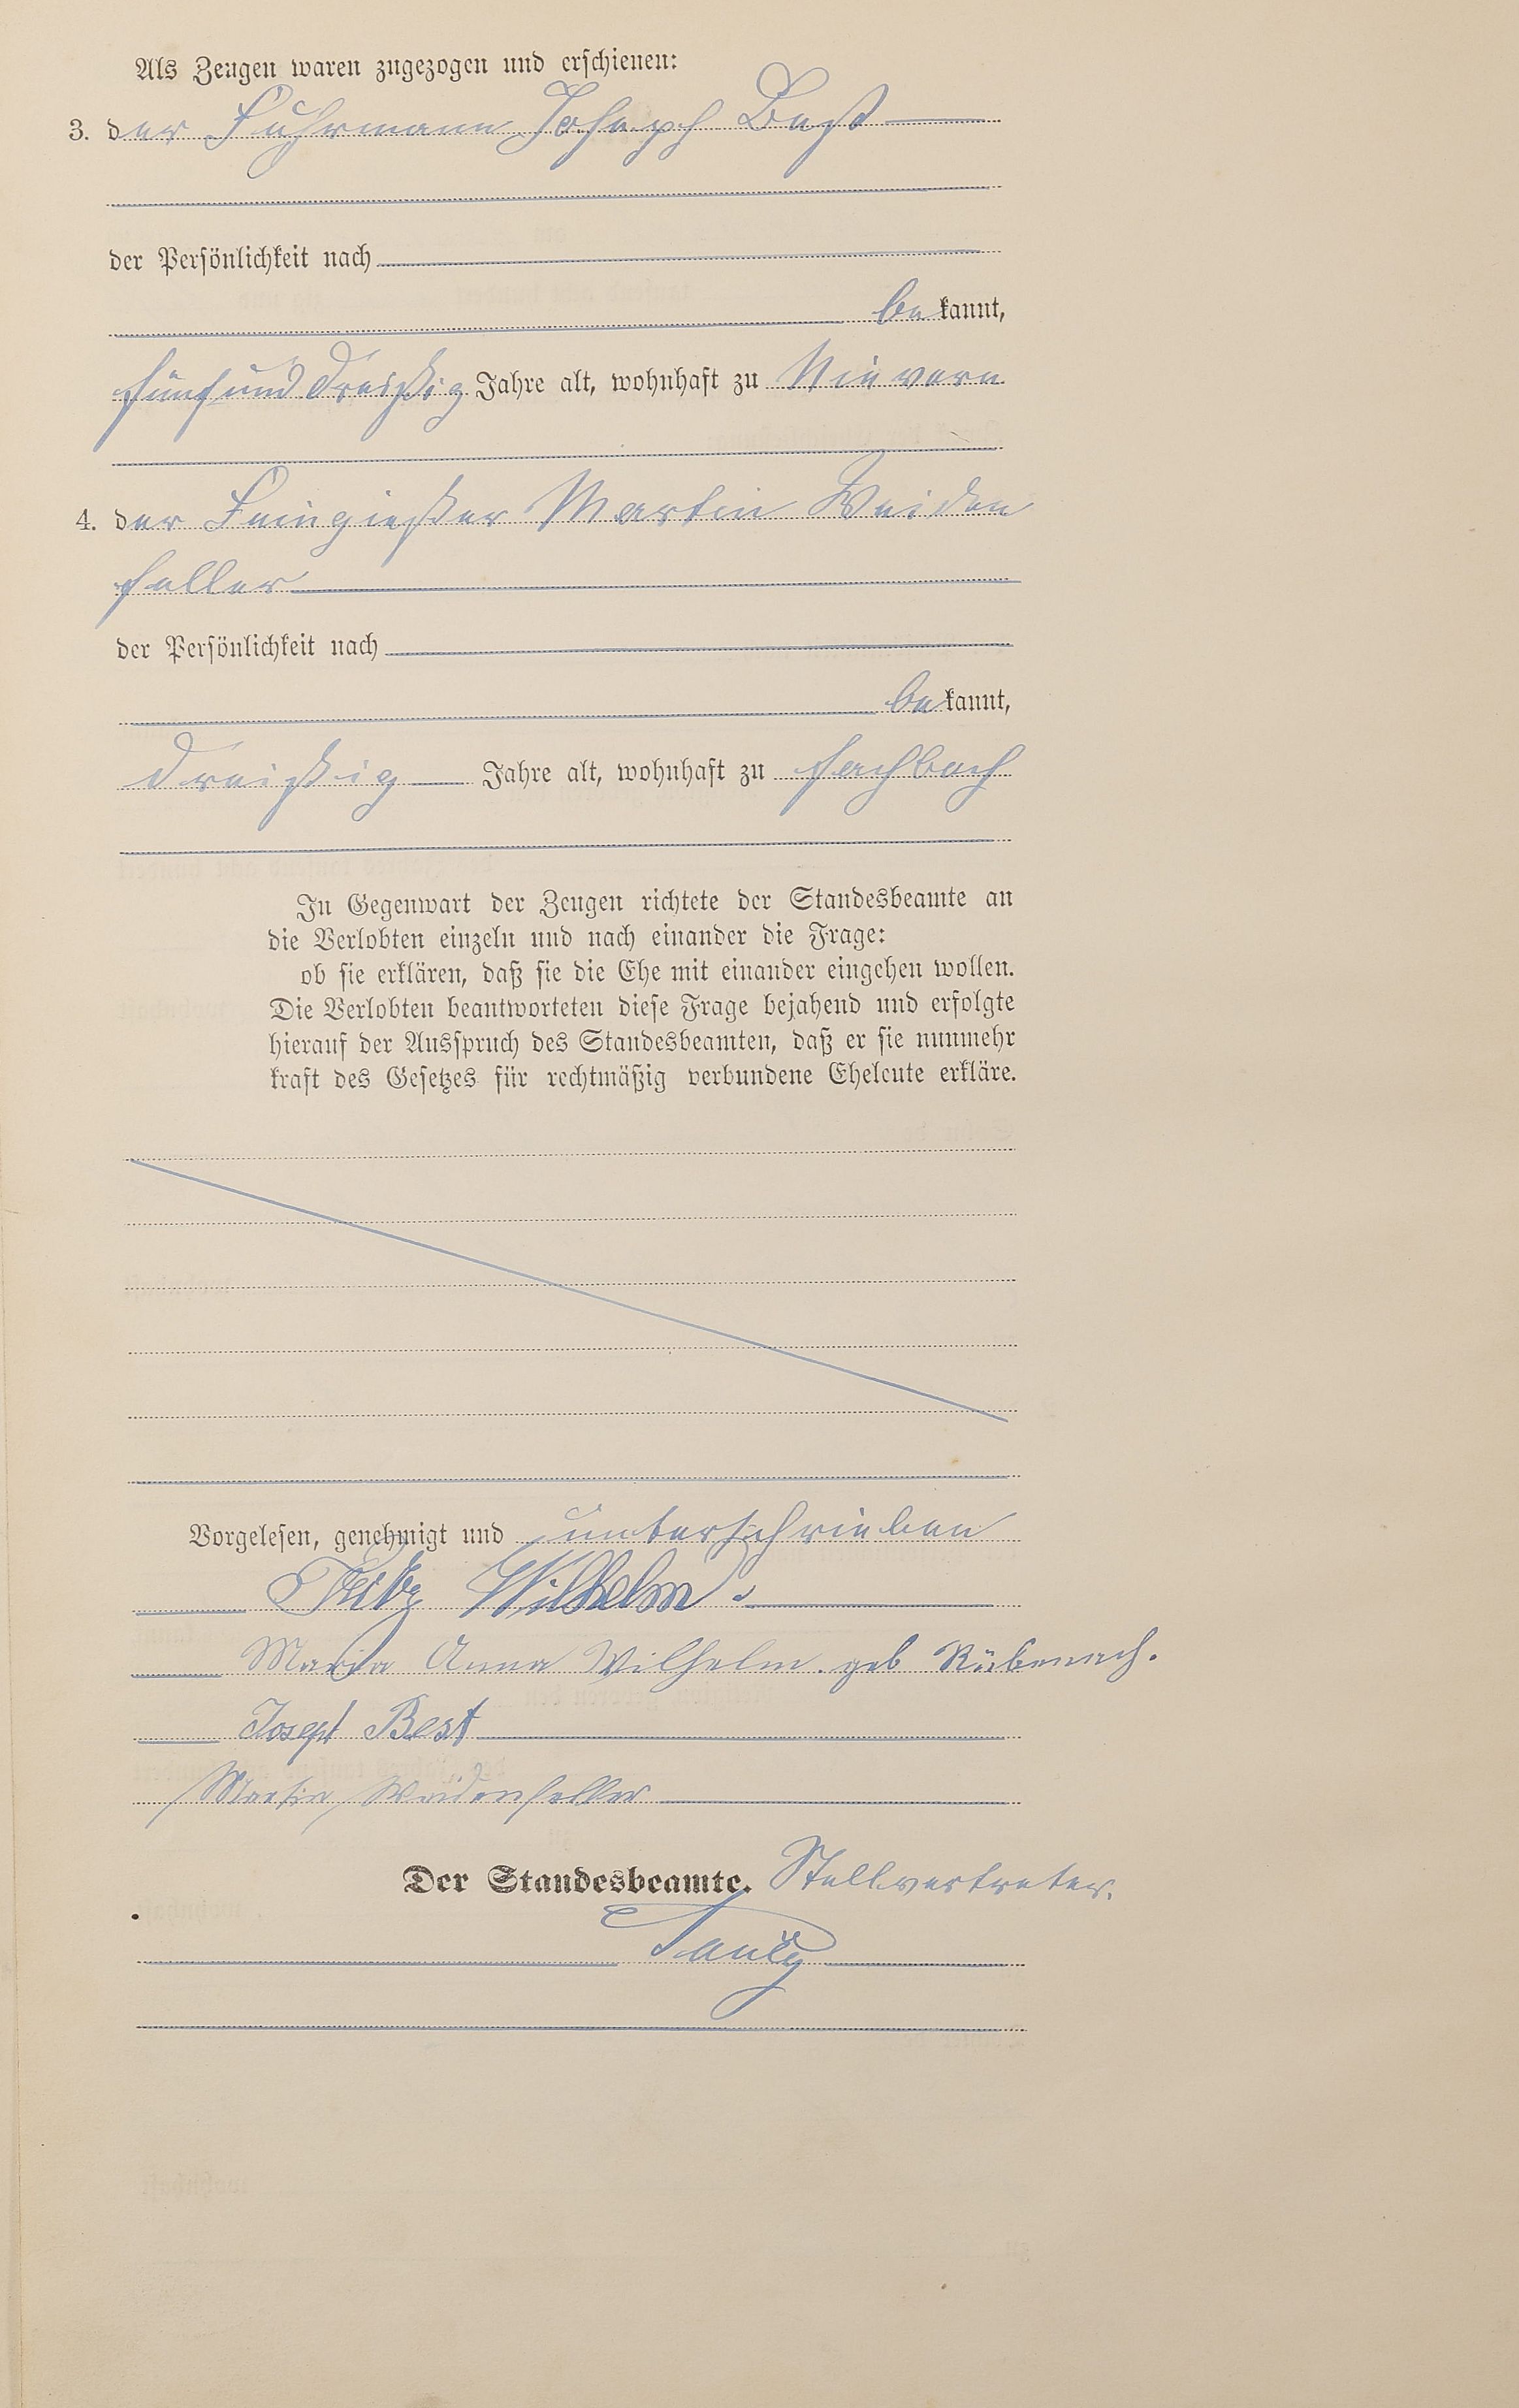 Als Zeugen waren zugezogen und erschienen:
3. der Fuhrmann Joseph Best
der Persönlichkeit nach
bekannt,
fünfunddreißig Jahre alt, wohnhaft zu Nievern
4. der Feingießer Martin Weiden
faller
der Persönlichkeit nach
bekannt,
dreißig Jahre alt, wohnhaft zu Fachbach
In Gegenwart der Zeugen richtete der Standesbeamte an
die Verlobten einzeln und nach einander die Frage:
ob sie erklären, daß sie die Ehe mit einander eingehen wollen.
Die Verlobten beantworteten diese Frage bejahend und erfolgte
hierauf der Ausspruch des Standesbeamten, daß er sie nunmehr
kraft des Gesetzes für rechtmäßig verbundene Eheleute erkläre.
Vorgelesen, genehmigt und unterschrieben
Fritz Wilhelm.
Maria Anna Wilhelm. geb Rübenach.
Joseph Best
Martin Weidenfeller
Der Standesbeamte. Stellvertreter.